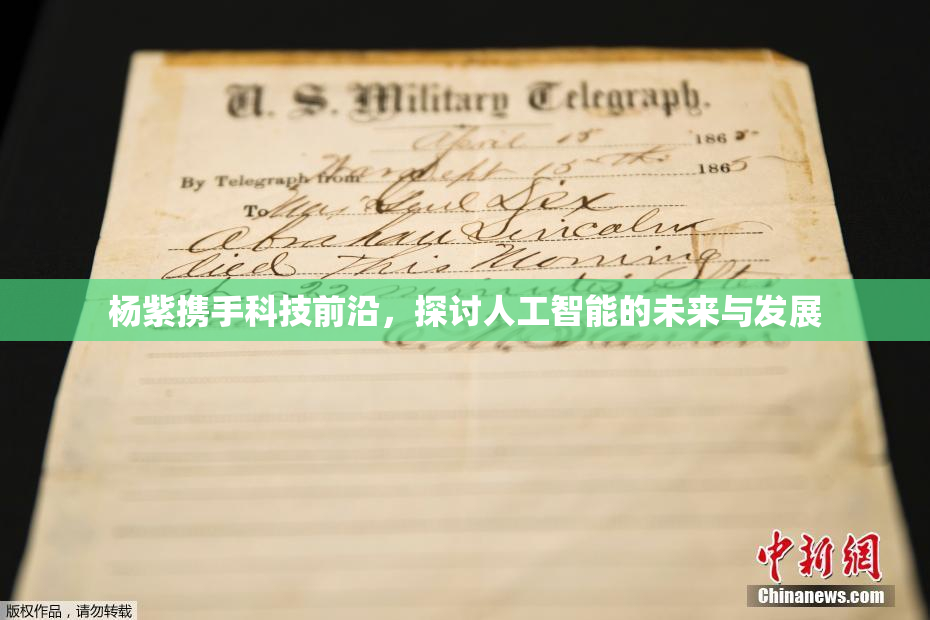 U. S. Military Telegraph.
April 15 1865
By Telegraph from War Dept 15th 1865
To Maj Genl Dix
Abraham Lincoln
died This Morning
22 minutes after
杨紫携手科技前沿，探讨人工智能的未来与发展
E. M. Stanton
中新网
Chinanews.com
版权作品，请勿转载